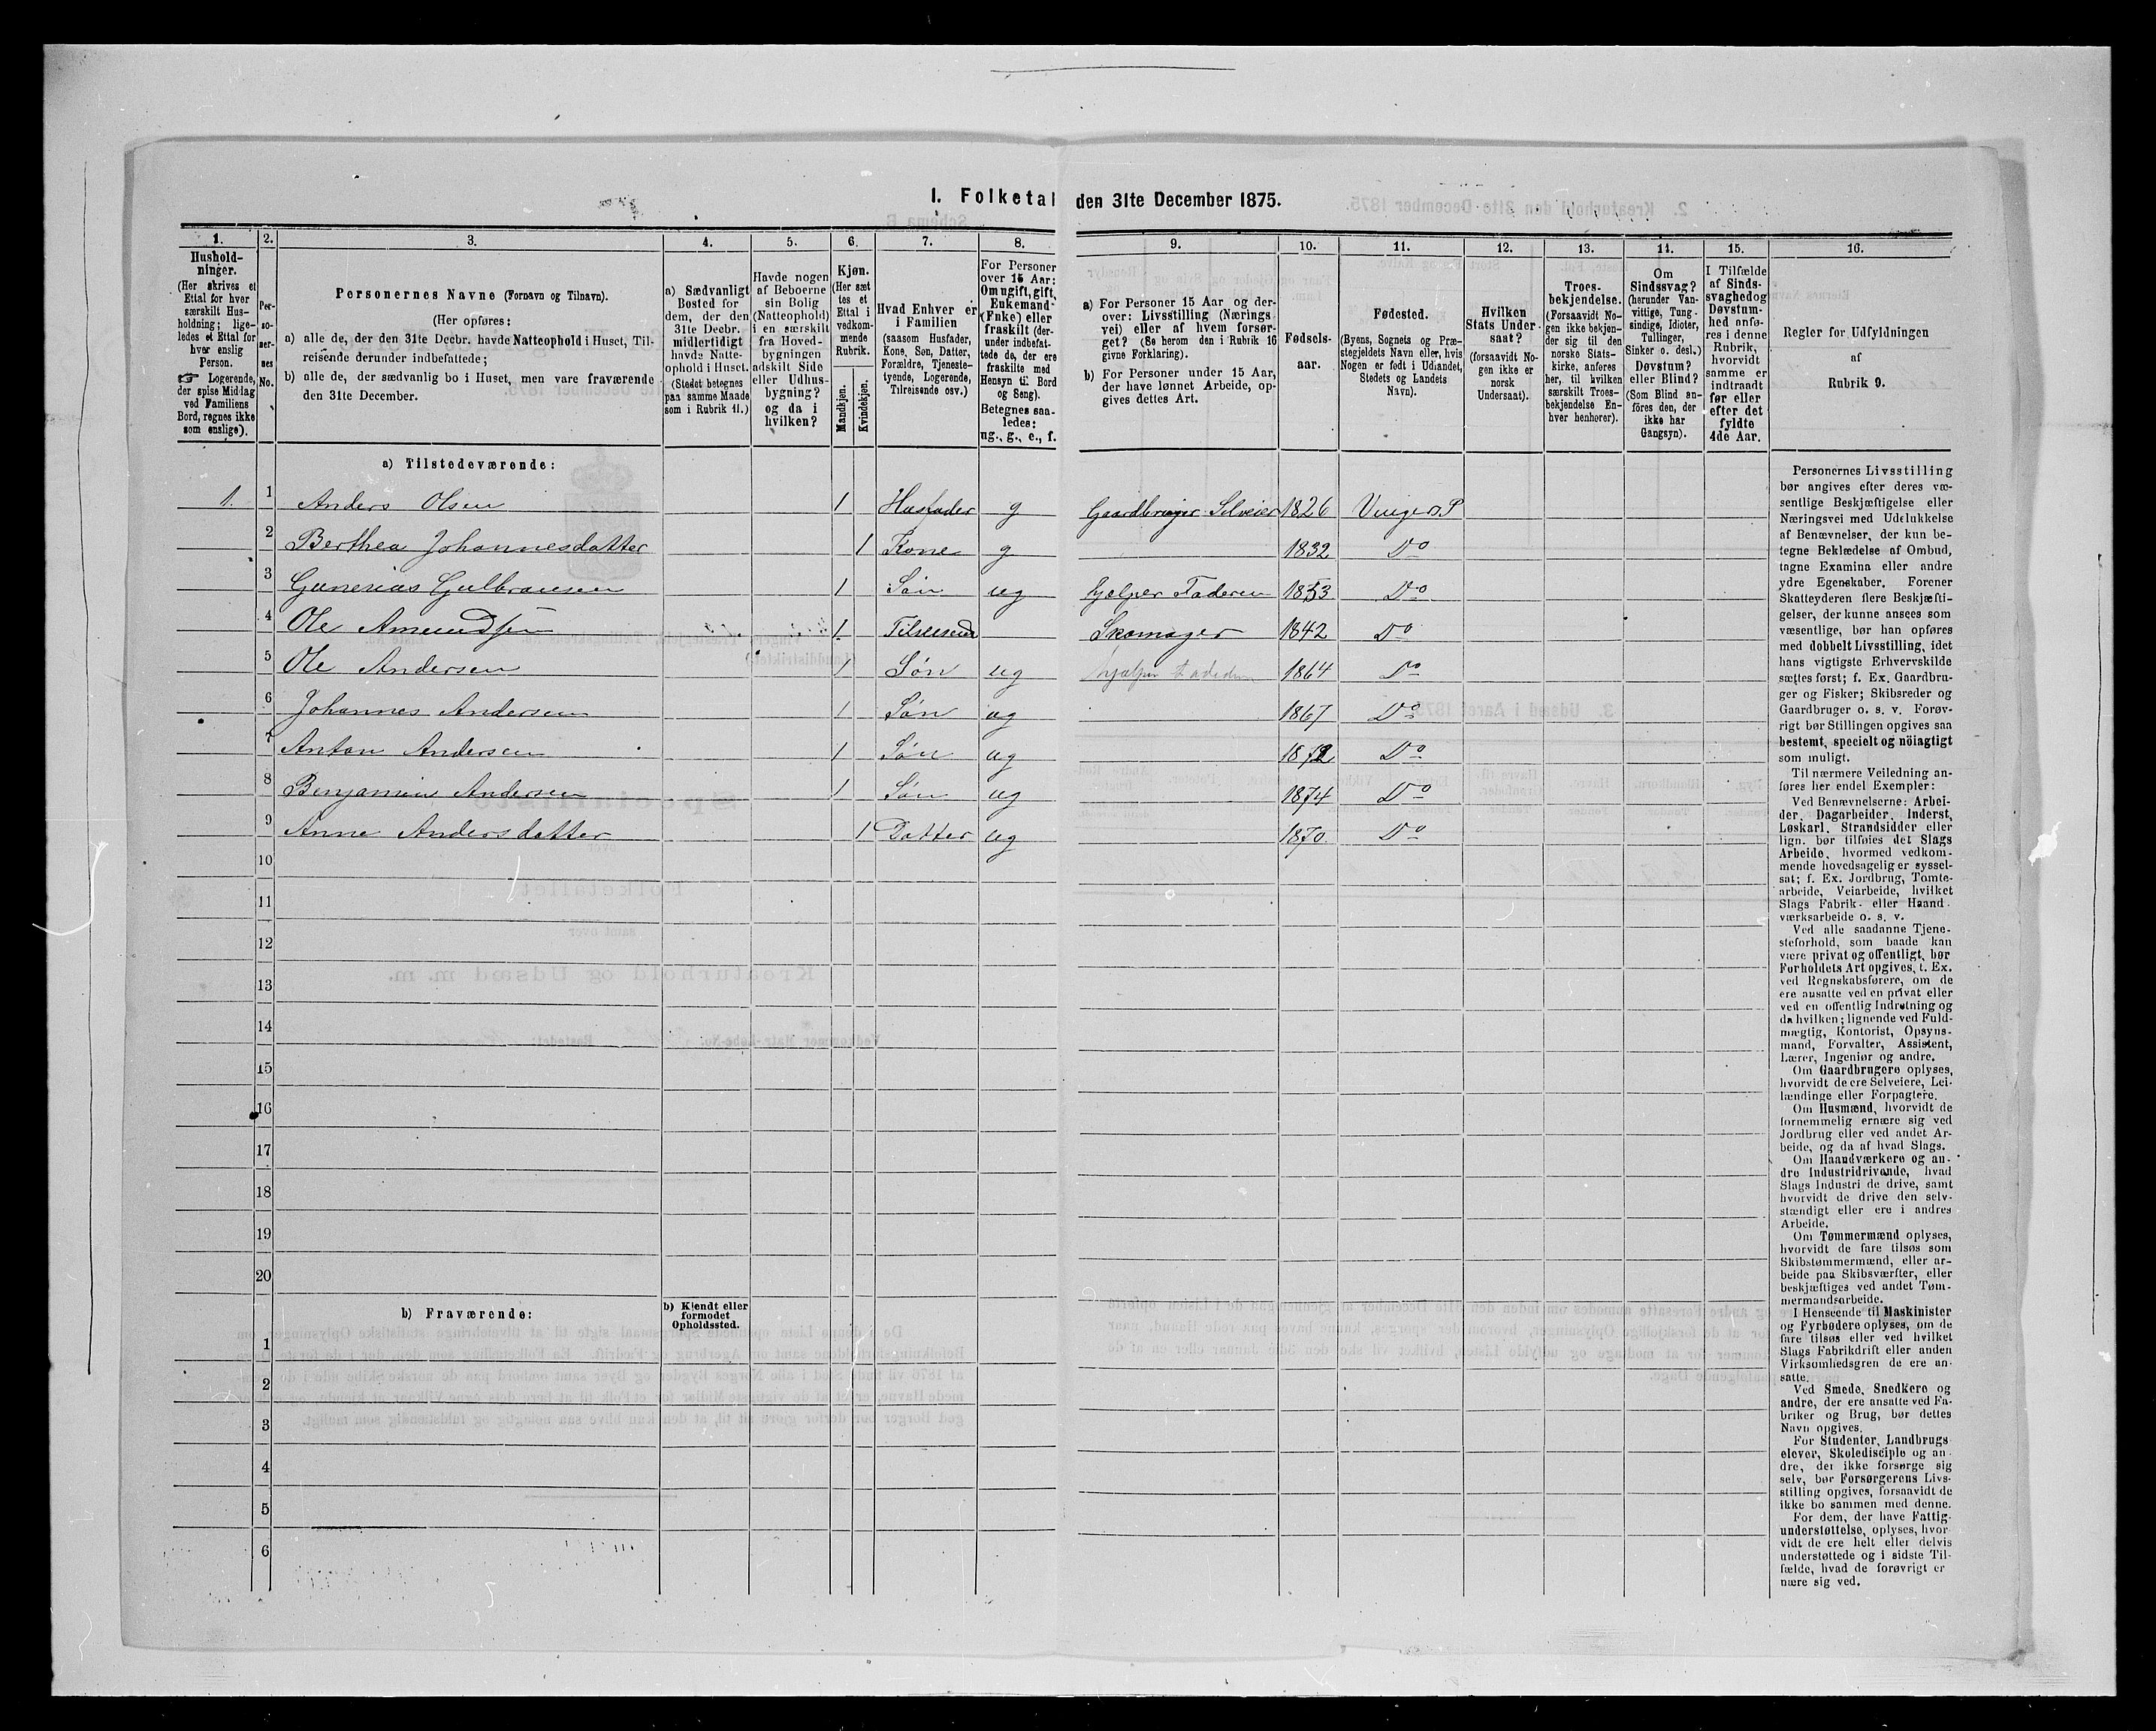 I. Folketal den 31te December 1875.
1. 2. 3. 4. 5. 6. 7. 8. 9. 10. 11. 12. 13. 14. 15. 16.
Hushold-
ninger.
(Her skrives et
Ettal for hver
særskilt Hus-
holdning; lige-
ledes et Ettal for
hver enslig
Person.
☞ Logerende,
der spise Middag
ved Familiens
Bord, regnes ikke
som enslige).
Per-
so-
ner-
nes
No.
Personernes Navne (Fornavn og Tilnavn).
(Her opføres:
a) alle de, der den 31te Decbr. havde Natteophold i Huset, Til-
reisende derunder indbefattede;
b) alle de, der sædvanlig bo i Huset, men vare fraværende
den 31te December.
a) Sædvanligt
Bosted for
dem, der den
31te Decbr.
midlertidigt
havde Natte-
ophold i Huset.
(Stedet betegnes
paa samme Maade
som i Rubrik 11.)
Havde nogen
af Beboerne
sin Bolig
(Natteophold)
i en særskilt
fra Hoved-
bygningen
adskilt Side
eller Udhus-
bygning?
og da i
hvilken?
Kjøn.
(Her sæt
tes et
Ettal i
vedkom-
mende
Rubrik.
Mandkjøn.
Kvindekjøn.
Hvad Enhver er
i Familien
(saasom Husfader,
Kone, Søn, Datter,
Forældre, Tjeneste-
tyende, Logerende,
Tilreisende osv.)
For Personer
over 15 Aar:
Om ugift, gift,
Enkemand-
(Enke) eller
fraskilt (der-
under indbefat-
tede de, der ere
fraskilte med
Hensyn til Bord
og Seng).
Betegnes saa-
ledes:
ug., g., e., f.
a) For Personer 15 Aar og der-
over: Livsstilling (Nærings
vei) eller af hvem forsør-
get? (Se herom den i Rubrik 16
givne Forklaring).
b) For Personer under 15 Aar,
der have lønnet Arbeide, op-
gives dettes Art.
Fødsels-
aar.
Fødested.
(Byens, Sognets og Præ-
stegjeldets Navn eller, hvis
Nogen er født i Udlandet,
Stedets og Landets
Navn).
Hvilken
Stats Under-
saat?
(forsaavidt No-
gen ikke er
norsk
Undersaat).
Troes-
bekjendelse.
(Forsaavidt No-
gen ikke bekjen-
der sig til den
norske Stats-
kirke, anføres
her, til hvilken
særskilt Troes-
bekjendelse En-
hver henhører).
Om
Sindssvag?
(herunder Van-
vittige, Tung-
sindige, Idioter,
Tullinger,
Sinker o. desl.)
Døvstum?
eller Blind?
(Som Blind an-
føres den, der
ikke har
Gangsyn).
I Tilfælde
af Sinds-
svaghed og
Døvstum-
hed anfø-
res i denne
Rubrik,
hvorvidt
samme er
indtraadt
før eller
efter det
fyldte
4de Aar.
Regler for Udfyldningen
af
Rubrik 9.
a) Tilstedeværende:
1. 1 Anders Olsen 1 Husfader g Gaardbruger Selveier 1826 Vinger P
2 Berthea Johannesdatter 1 Kone g 1832 Do
3 Gunerius Gulbransen 1 Søn ug hjelper Faderen 1853 Do
4 Ole Amundsen 1 Skomager 1842 Do
5 Ole Andersen 1 Søn ug hjelper 1864 Do
6 Johannes Andersen 1 Søn ug 1867 Do
7 Anton Andersen 1 Søn ug 1872 Do
8 Benjamin Andersen 1 Søn ug 1874 Do
9 Anne Andersdatter 1 Datter ug 1870. Do
10
11
12
13
14
15
16
17
18
19
20
b) Fraværende:
b) Kjendt eller
formodet
Opholdssted.
1
2
3
4
5
6
Personernes Livsstilling
bør angives efter deres væ-
sentlige Beskjæftigelse eller
Næringsvei med Udelukkelse
af Benævnelser, der kun be-
tegne Beklædelse af Ombud,
tagne Examina eller andre
ydre Egenskaber. Forener
Skatteyderen flere Beskjæfti-
gelser, der kunne ansees som
væsentlige, bør han opføres
med dobbelt Livsstilling, idet
hans vigtigste Erhvervskilde
sættes først; f. Ex. Gaardbru-
ger og Fisker; Skibsreder og
Gaardbruger o. s. v. Forøv-
rigt bør Stillingen opgives saa
bestemt, specielt og nöiagtigt
som muligt.
Til nærmere Veiledning an-
føres her endel Exempler:
Ved Benævnelserne: Arbei-
der, Dagarbeider, Inderst,
Løskarl, Strandsidder eller
lign. bør tilføies det Slags
Arbeide, hvormed vedkom-
mende hovedsagelig er syssel-
sat; f. Ex. Jordbrug, Tomte-
arbeide, Veiarbeide, hvilket
Slags Fabrik- eller Haand-
værksarbeide o. s. v.
Ved alle saadanne Tjene-
steforhold, som baade kan
være privat og offentligt, bør
Forholdets Art opgives, t. Ex.
ved Regnskabsførere, om de
ere ansatte ved en privat eller
ved en offentlig Indretning og
da hvilken; lignende ved Fuld-
mægtig, Kontorist, Opsyns-
mand, Forvalter, Assistent,
Lærer, Ingeniør og andre.
Om Gaardbrugere oplyses,
hvorvidt de ere Selveiere, Lei-
lændinge eller Forpagtere.
Om Husmænd, hvorvidt de
fornemmelig ernære sig ved
Jordbrug eller ved andet Ar-
beide, og da af hvad Slags.
Om Haandværkere og an-
dre Industridrivende, hvad
Slags Industri de drive, samt
hvorvidt de drive den selv-
stændigt eller ere i andres
Arbeide.
Om Tømmermænd oplyses,
hvorvidt de fare tilsøs som
Skibstømmermænd, eller ar-
beide paa Skibsværfter, eller
beskjæftiges ved andet Tøm-
mermandsarbeide.
I Henseende til Maskinister
og Fyrbødere oplyses, om de
fare tilsøs eller ved hvilket
Slags Fabrikdrift eller anden
Virksomhedsgren de ere an-
satte.
Ved Smede, Snedkere og
andre, der ere ansatte ved Fa-
briker og Brug, bør dettes
Navn opgives.
For Studenter, Landbrugs-
elever, Skoledisciple og an-
dre, der ikke forsørge sig
selv, bør Forsørgerens Livs-
stilling opgives, forsaavidt de
ikke bo sammen med denne.
For dem, der have Fattig-
understøttelse, oplyses, hvor-
vidt de ere helt eller delvis
understøttede og i sidste Til-
fælde, hvad de forøvrigt er
nære sig ved.